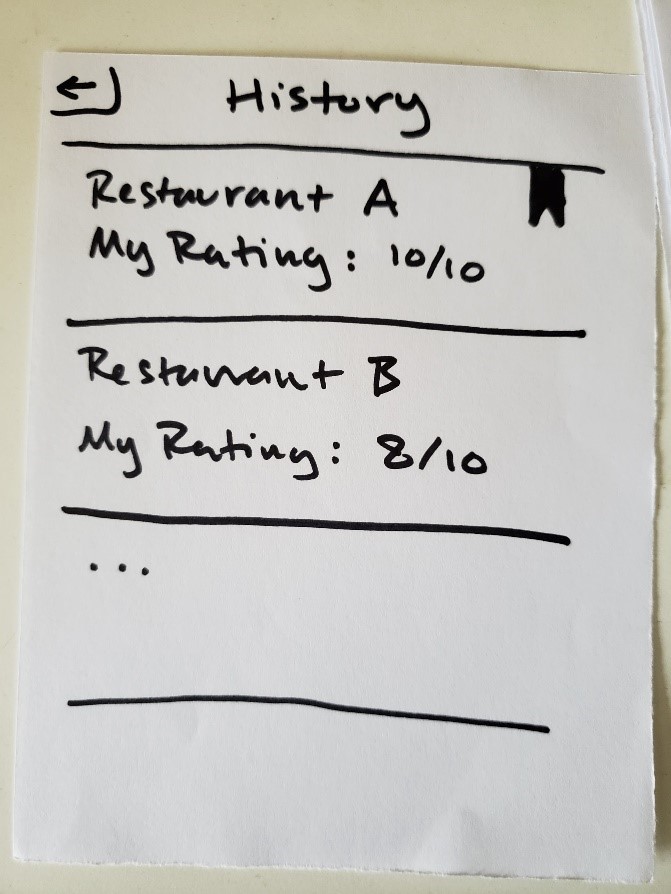 History
Restaurant A
My Rating: 10/10
Restaurant B
My Rating: 8/10
...